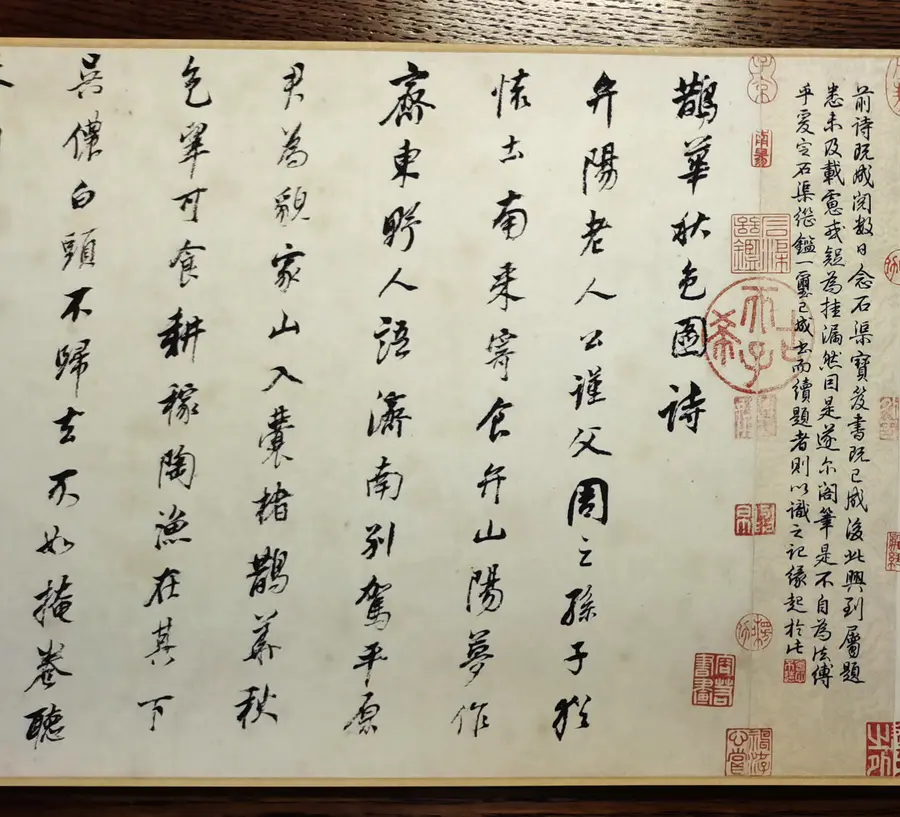 前诗既成閲數日念石渠寶笈書既已成後此興到屬題
悉未及載慮或疑為挂漏然因是遂尔阁筆是不自為法縛
乎爰定石渠繼鑑一璽已成書而續題者則以識之記缘起於此
鵲華秋色圖詩
弁陽老人公謹父周之孫子猶
懷土南来寄食弁山陽夢作
齊東野人語濟南别駕平原
君為貌家山入囊楮鵲華秋
色翠可食耕稼陶漁在其下
吳儂白頭不歸去不如掩卷聽